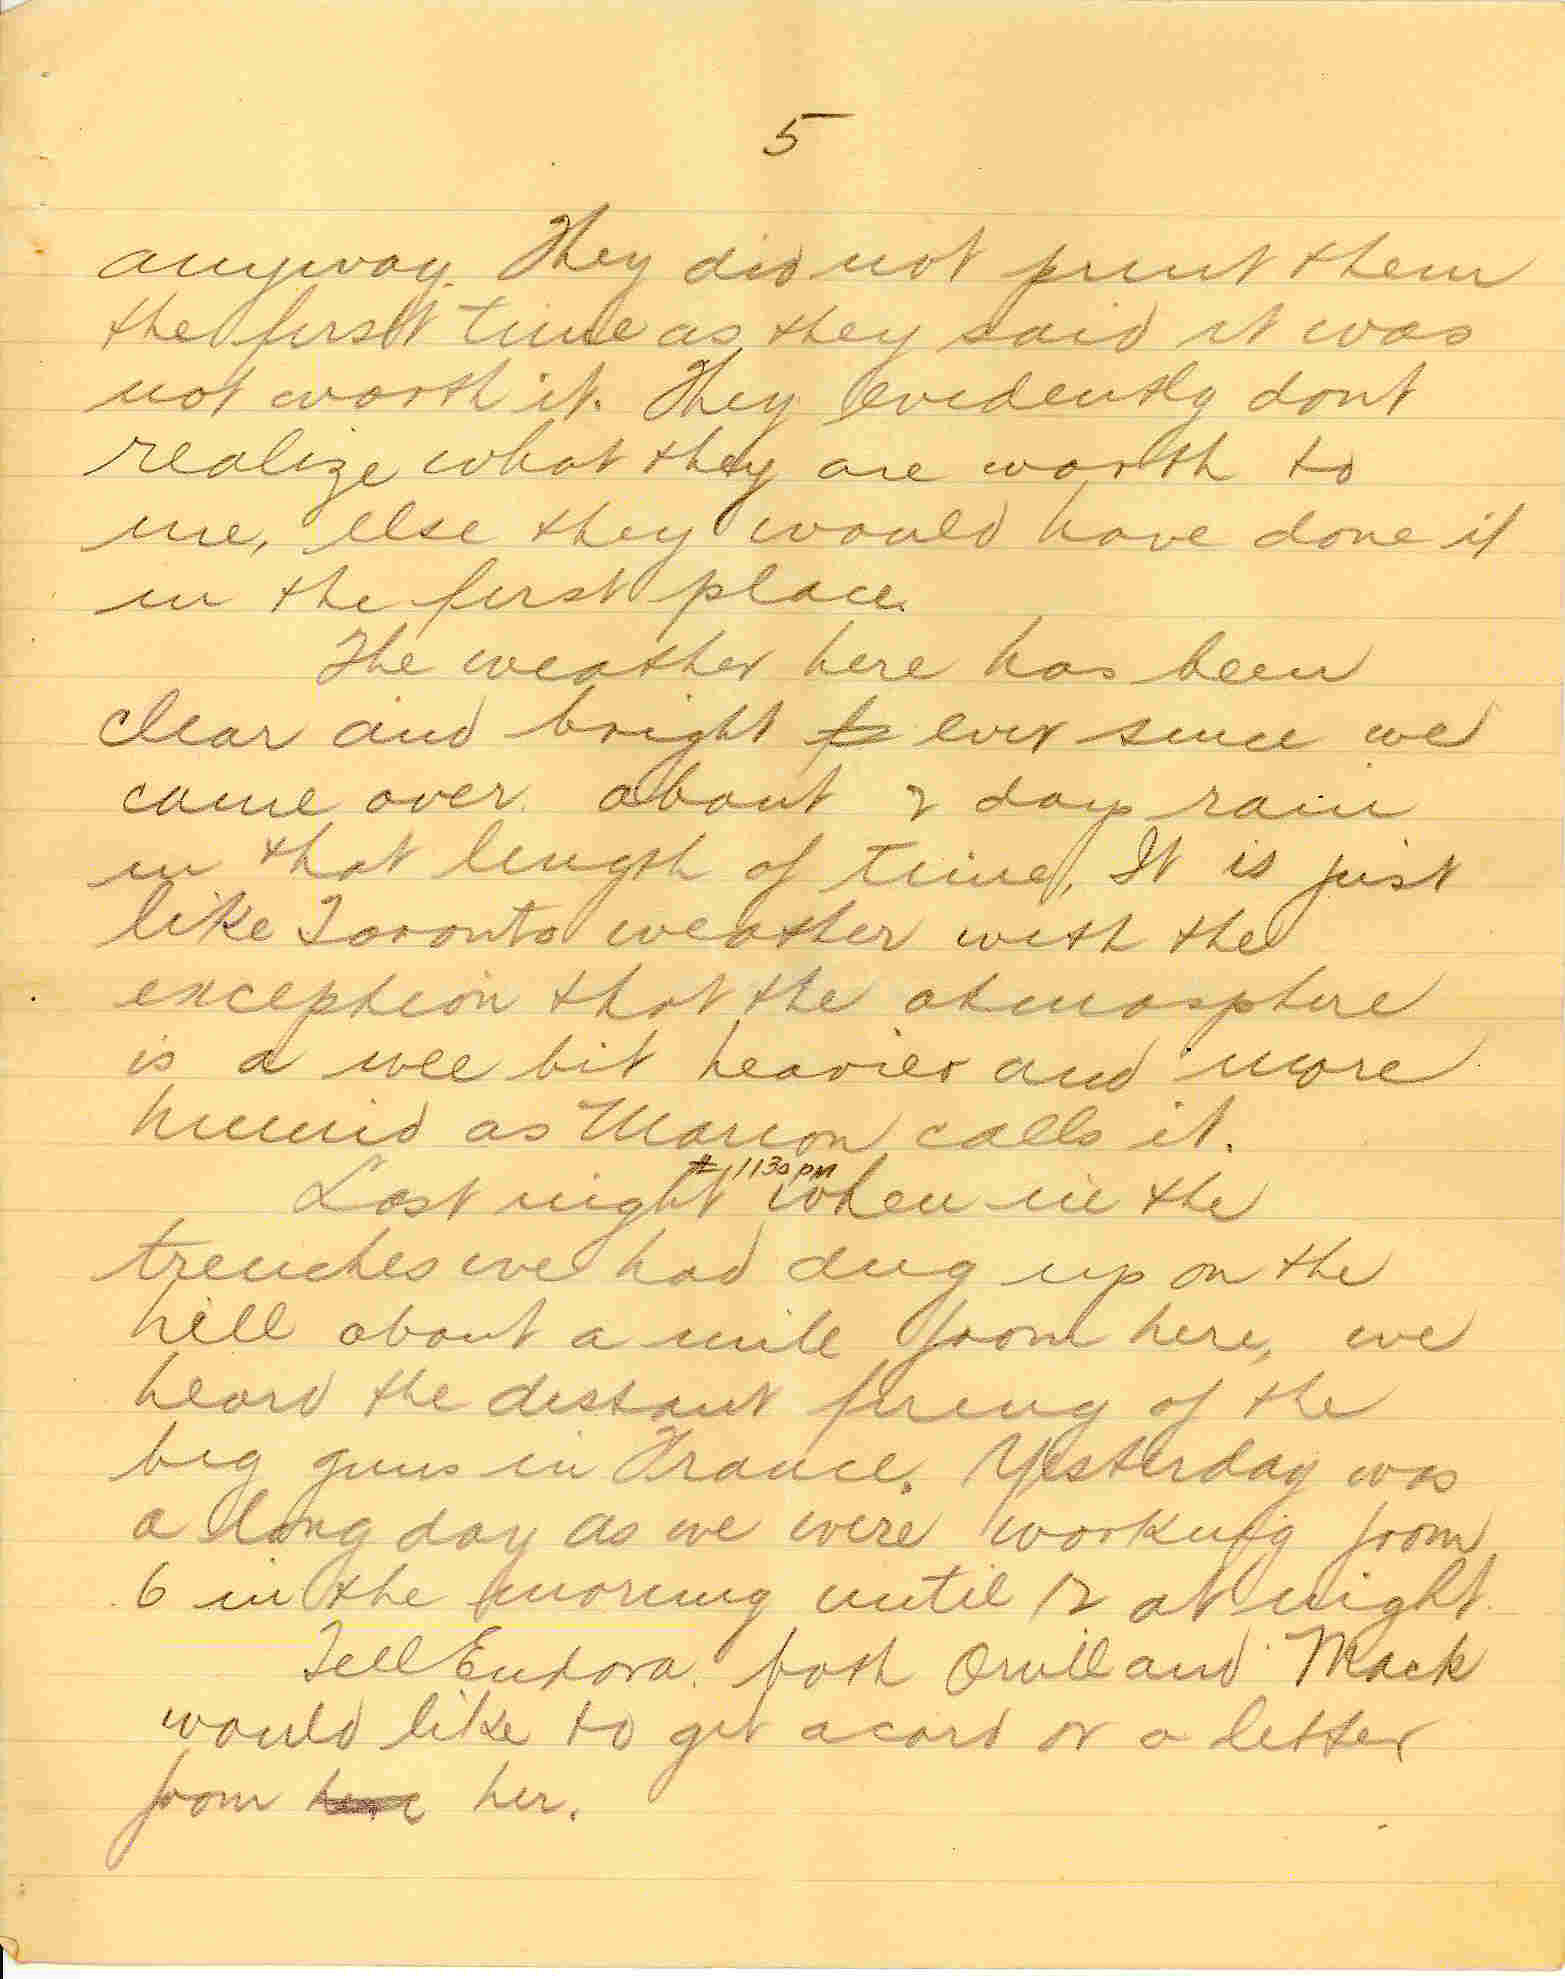 5
anyway. They did not print them
the first time as they said it was
not worth it. They evidently dont
realize what they are worth to
me, else they would have done it
in the first place.
The weather here has been
clear and bright ever since we
came over. about 2 days rain
in that length of time. It is just
like Toronto weather with the
exception that the atmosphere
is a wee bit heavier and more
humid as Marion calls it.
# 1130 pm
Last night when in the
trenches we had dug up on the
hill about a mile from here, we
heard the distant firing of the
big guns in France. Yesterday was
a long day as we were working from
6 in the morning until 12 at night.
Tell Eudora. both Orvill and Mack
would like to get a card or a letter
from her.